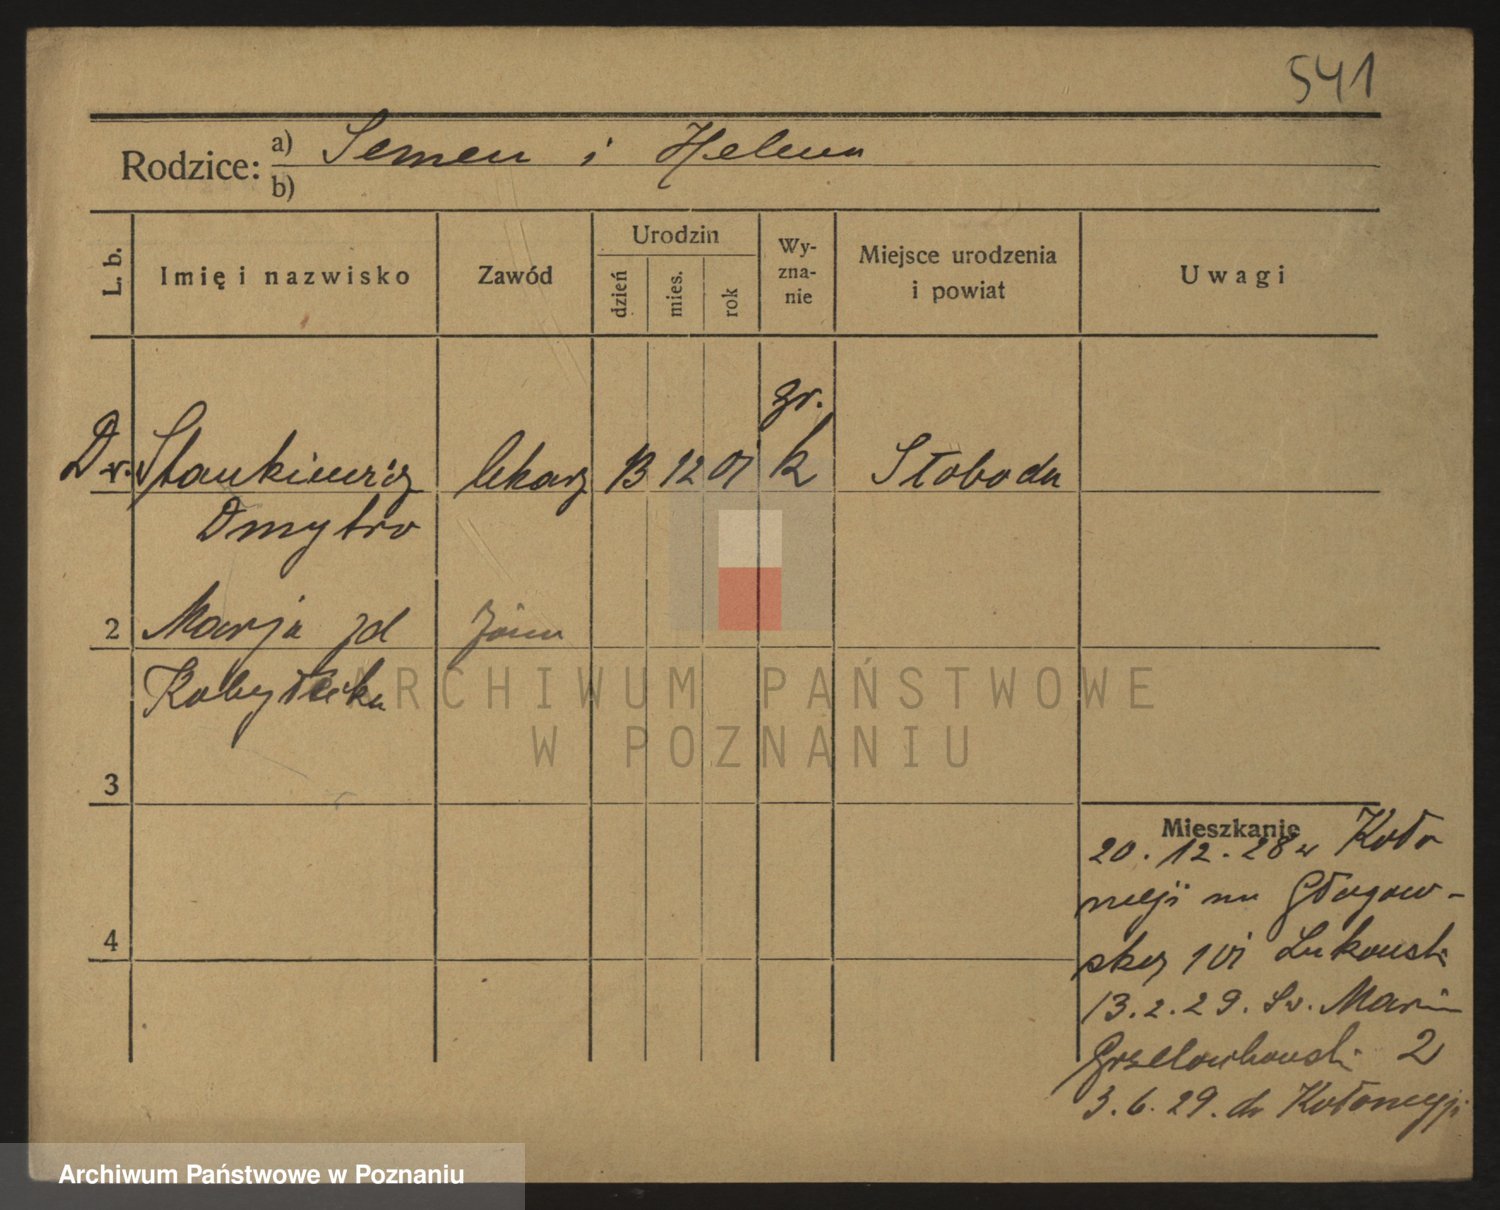 541
Rodzice: a) Semen i Helena
b)
L. b. Imię i nazwisko Zawód Urodzin dzień mies. rok Wy-zna-nie Miejsce urodzenia i powiat Uwagi
gr.
Dr. Stankiewicz lekarz 13 12 01 k Słoboda
Dmytro
2 Marja zd żona
Kobyłecka
3
4
Mieszkanie
20.12.28 w Koło
meji na Głogow-
skej 101 Lukowski
13.2.29. Św. Marcin
2
3.6.29. do Kołomyji
ARCHIWUM PAŃSTWOWE
W POZNANIU
Archiwum Państwowe w Poznaniu